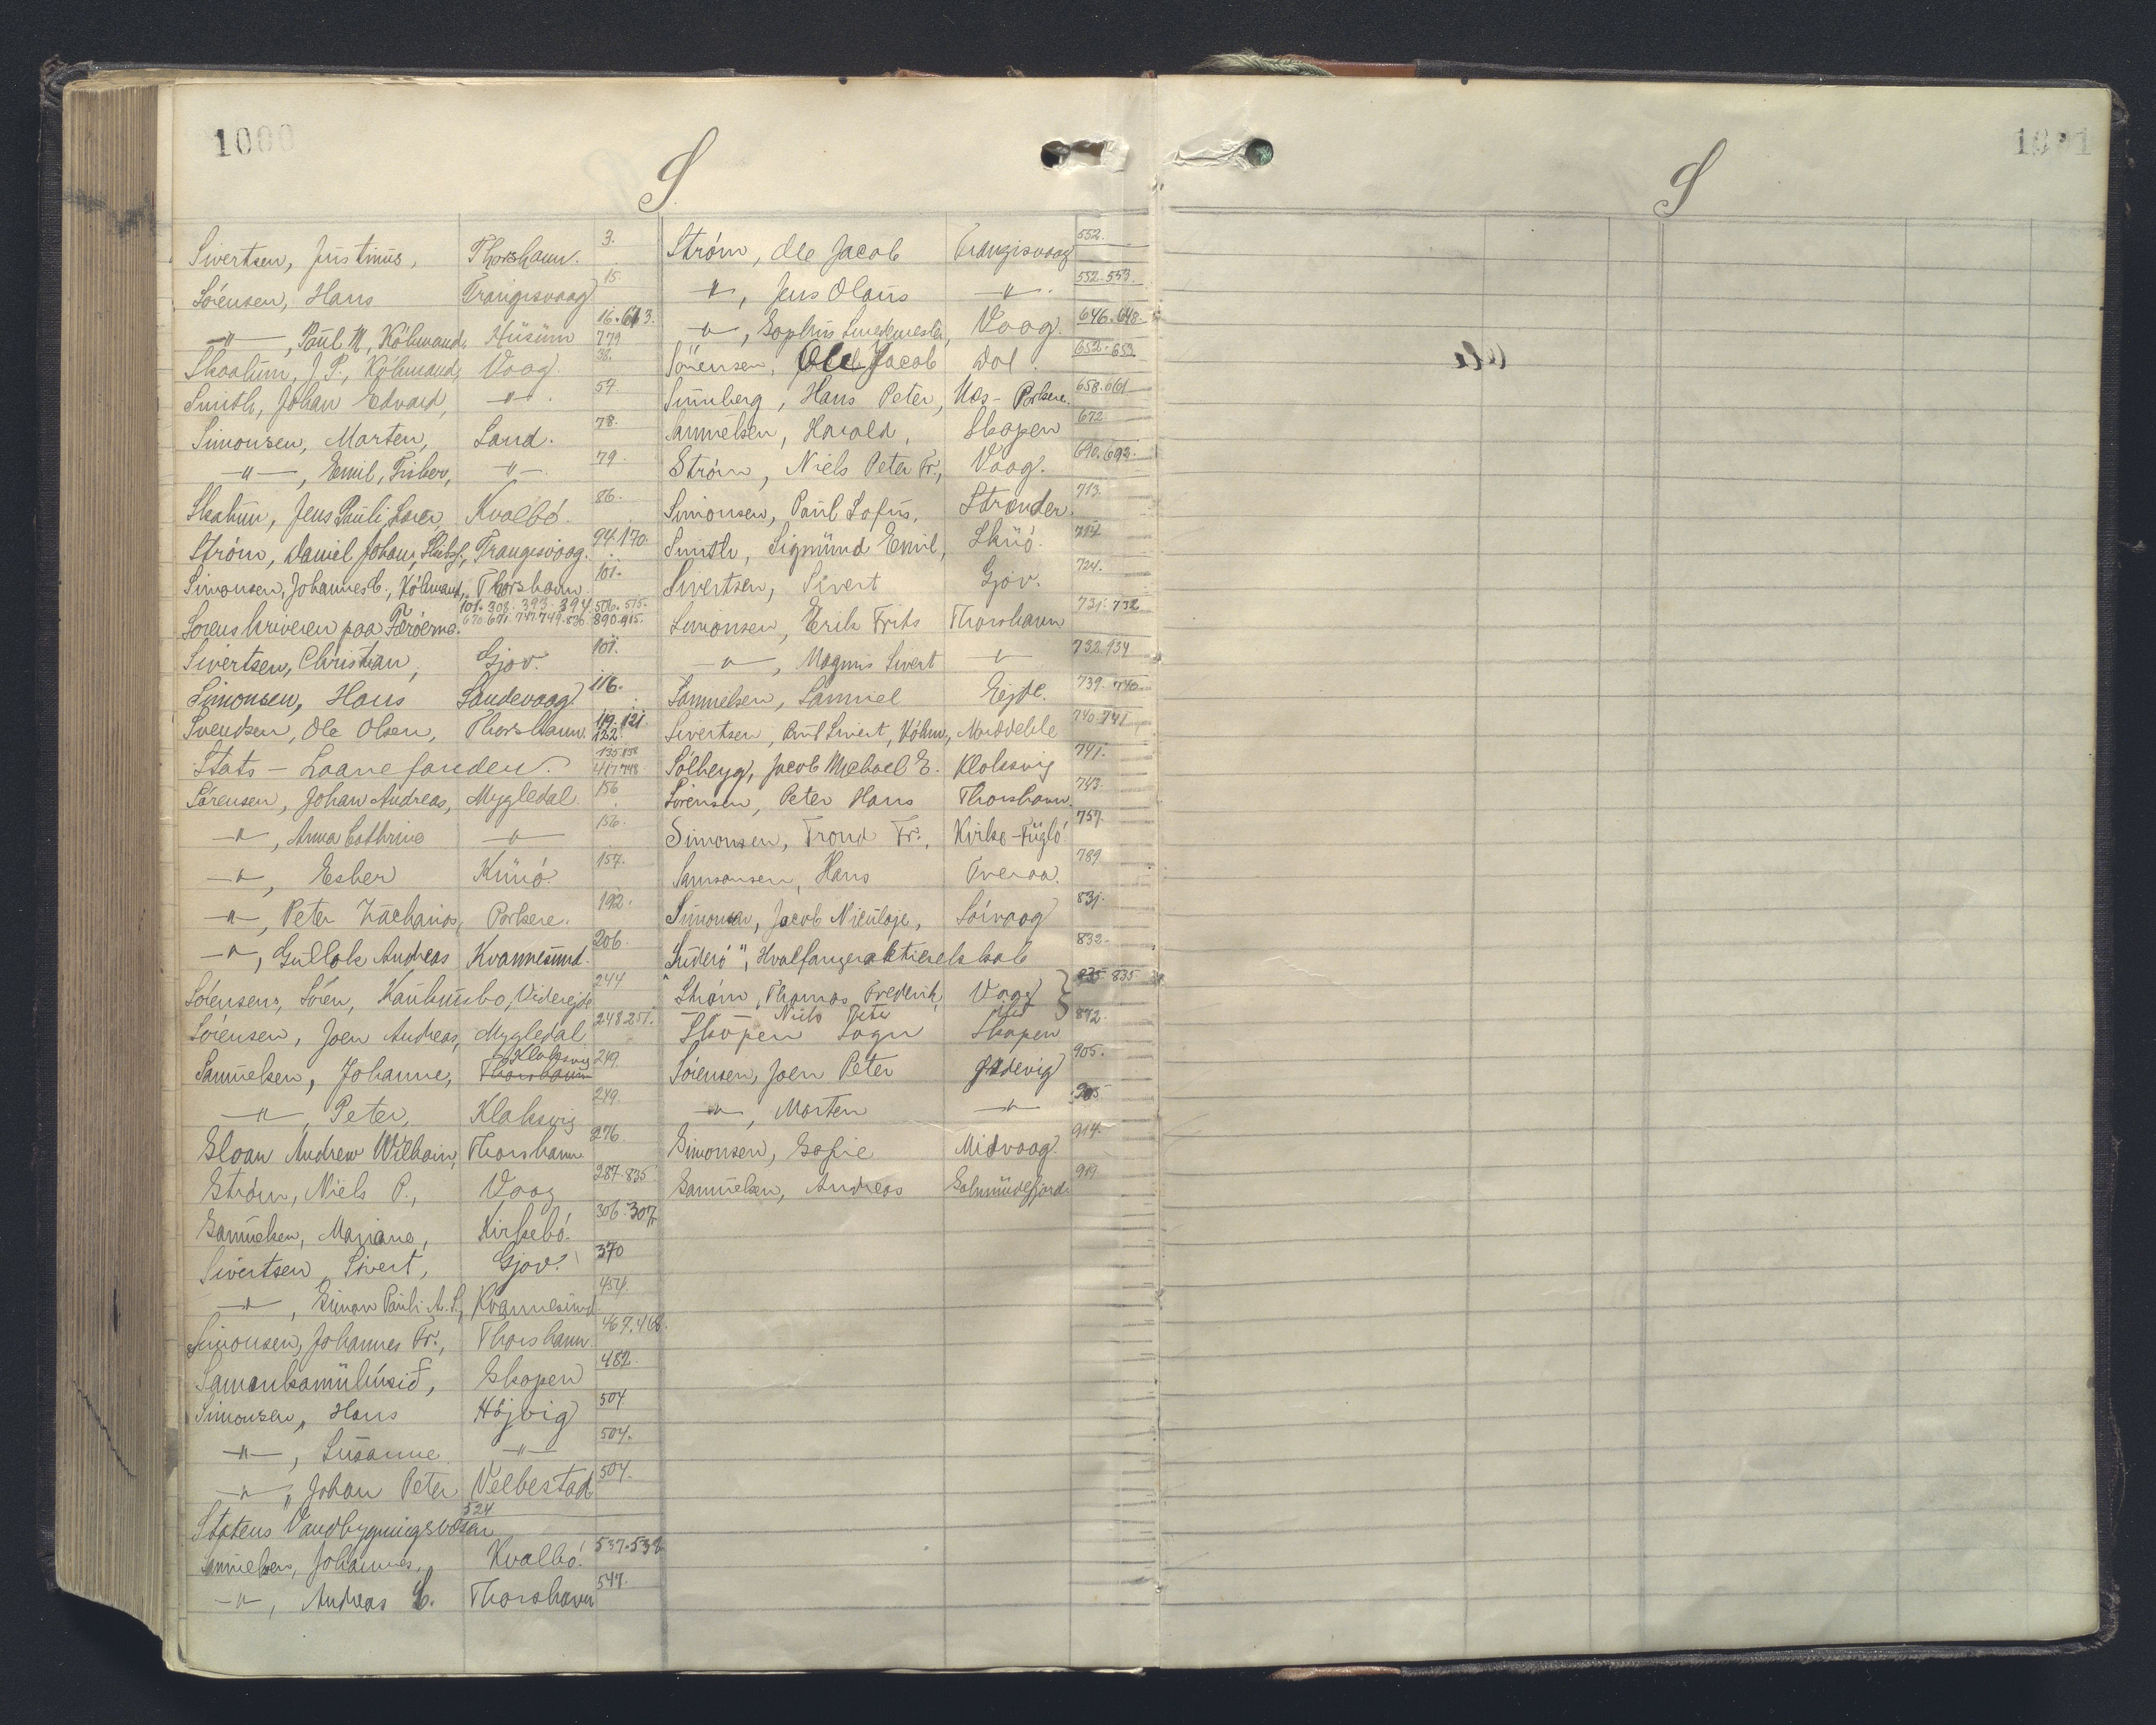 1000
S.
Sivertsen, Justinus, Thorshavn. 3.
Sörensen, Hans Trangisvaag 15.
—"—, Paul M, Köbmand, Husum 16. 613. 779
Skaalum, J. P., Köbmand, Vaag. 38.
Smith, Johan Edvard, —"—. 57.
Simonsen, Morten, Sand. 78.
—"—, Emil, Fisker, —"—. 79.
Skalum, Jens Pauli, Kvalbö. 86.
Ström, Daniel Johan, Trangisvaag. 94. 170.
Simonsen, Johannes C., Köbmand, Thorshavn 101.
Sorenskriveren paa Færöerne. 101. 308. 393. 394. 506. 515. 670. 671. 747. 749. 836. 890. 915.
Sivertsen, Christian, Gjov. 101.
Simonsen, Hans Sandevaag 116.
Svendsen, Ole Olsen, Thorshavn. 119. 121. 122.
Stats-Laanefonden. 417 748
Sörensen, Johan Andreas, Mygledal. 156
—"—, Anna Cathrine —"— 156.
—"—, Esber Kunö. 157.
—"—, Peter Zacharias, Porkere. 192.
—"—, Gullak Andreas Kvannesund. 206.
Sörensen, Sören, Viderejde 244
Sörensen, Joen Andreas, Mygledal 248 251.
Samuelsen, Johanne, Klaksvig Thorshavn 249.
—"—, Peter, Klaksvig 249.
Sloan Andrew William, Thorshavn 276.
Ström, Niels P., Vaag 287. 835.
Samuelsen, Mariane, Kirkebö. 306. 307.
Sivertsen, Sivert, Gjov. 370
—"—, Simon Pauli A. S., Kvannesund. 454.
Simonsen, Johannes Fr., Thorshavn. 467. 468.
Samankomuhúsið, Skopen 482.
Simonsen, Hans Höjvig 504
—"—, Susanne —"— 504.
—"—, Johan Peter Velbestad 504.
Statens Vandbygningsvæsen 524.
Samuelsen, Johannes, Kvalbö. 537. 538.
—"—, Andreas C. Thorshavn 547.
Ström, Ole Jacob Trangisvaag 552.
—"—, Jens Olaus —"—. 552. 553.
—"—, Sophus Smedemester, Vaag. 646. 648.
Sörensen, Ole Jacob Dal. 652. 653
Sunnberg, Hans Peter, Næs-Porkere. 658. 661
Samuelsen, Harald, Skopen 672
Ström, Niels Peter Fr., Vaag. 690. 692.
Simonsen, Paul Sofus, Strender. 713.
Smith, Sigmund Emil, Skuö.
Sivertsen, Sivert Gjov. 724.
Simonsen, Erik Frits Thorshavn 731. 732
—"—, Magnus Sivert —"— 732. 734
Samuelsen, Samuel Ejde. 739. 740.
Sivertsen, Poul Sivert, Köbm, Norddeble 740. 741
Sólberg, Jacob Michael E. Klaksvig 741.
Sörensen, Peter Hans Thorshavn. 743.
Simonsen, Trond Fr., Kirke-Fuglö 757.
Samsonsen, Hans Tveraa. 789
Simonsen, Jacob Niculaje, Sörvaag 831.
"Suderö", Hvalfangeraktieselskab 832.
Ström, Thomas Frederik, Vaag 835. 835.
Niels Peter
Skopen Sogn Skopen 872.
Sörensen, Joen Peter Ördevig 905.
—"—, Morten —"— 905
Simonsen, Sofie Midvaag. 914.
Samuelsen, Andreas Solmundefjord. 919
1001
S